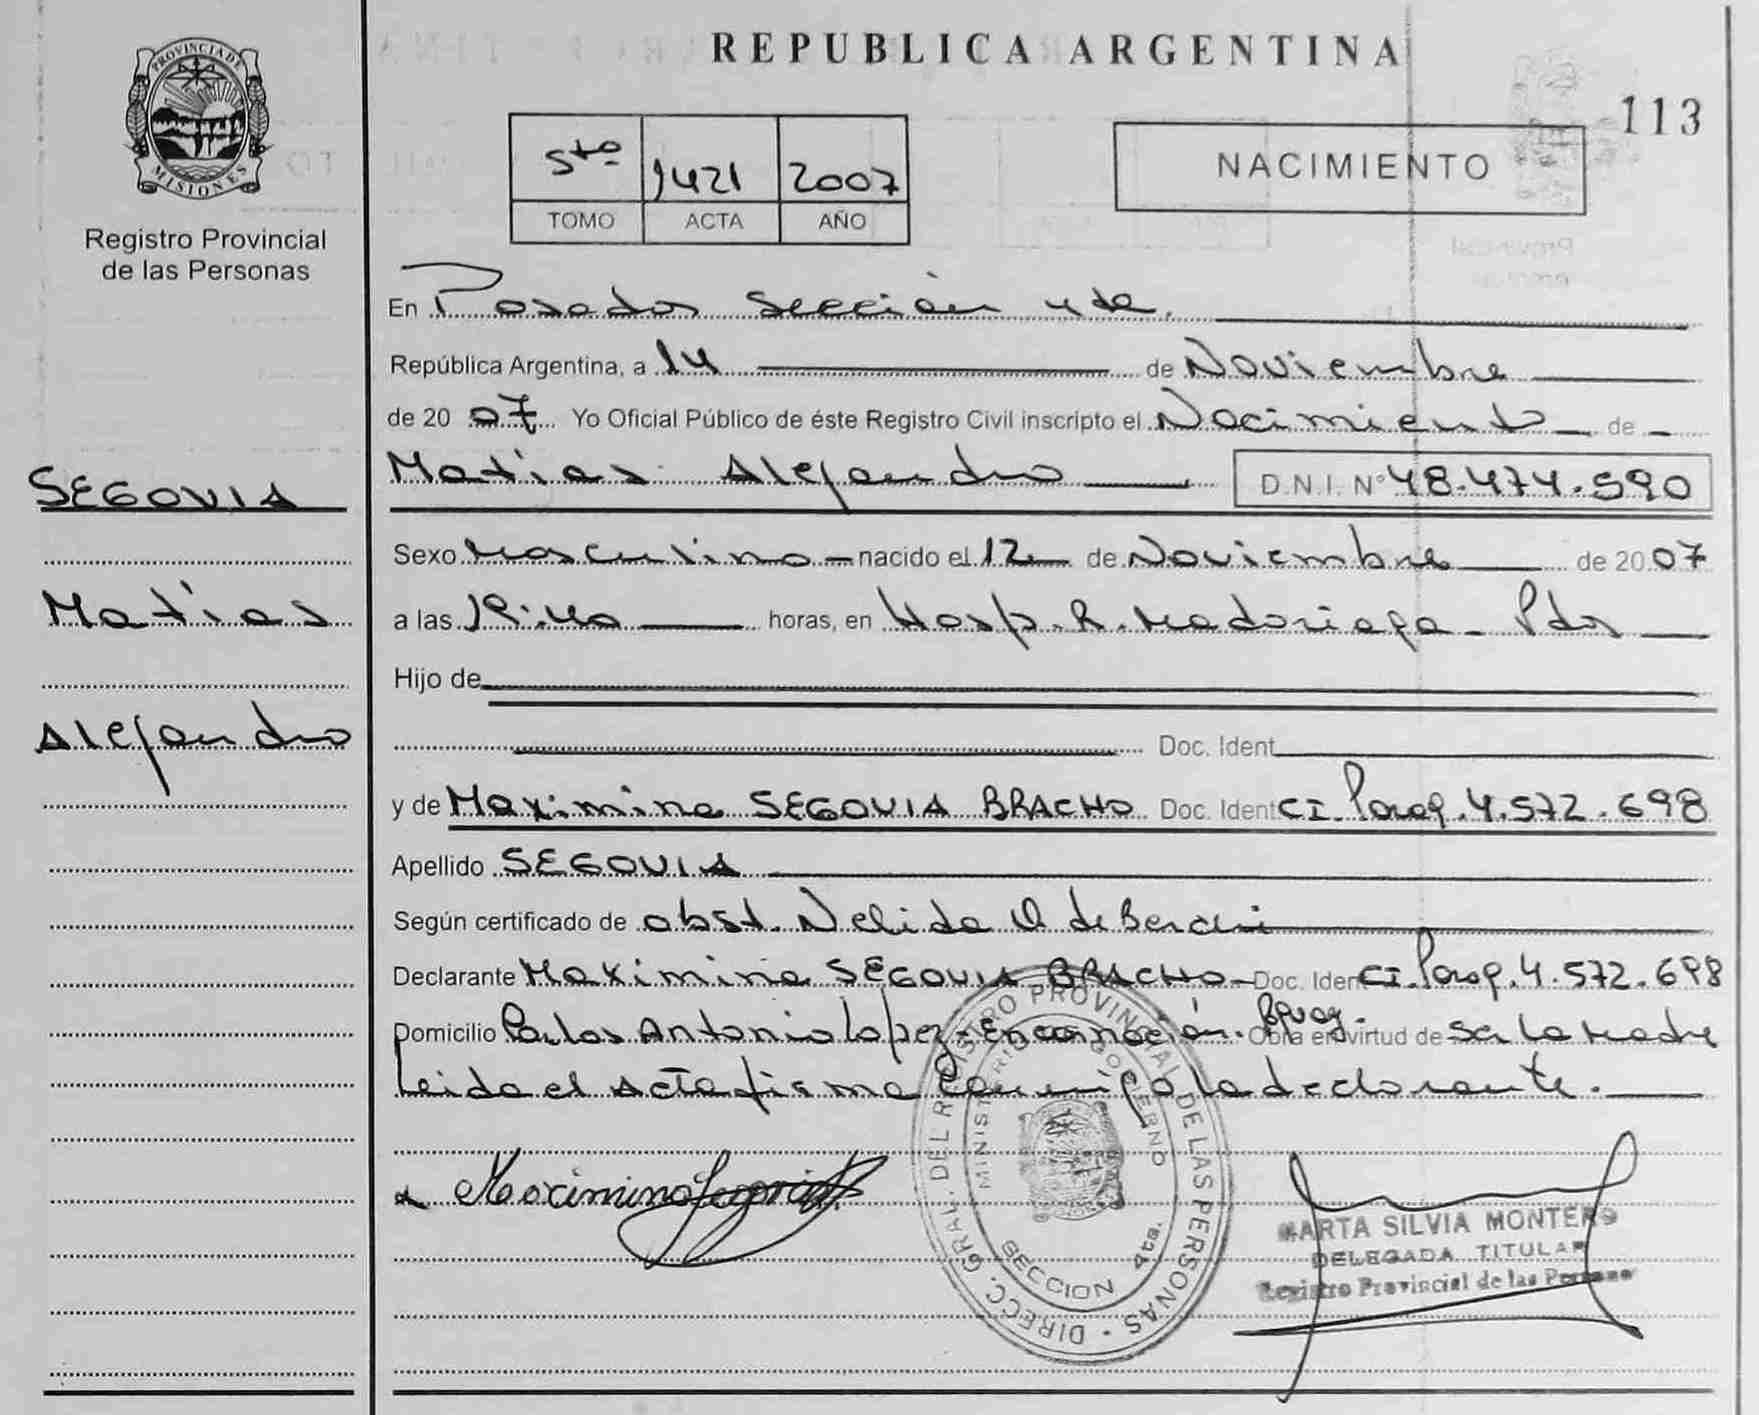 REPUBLICA ARGENTINA
113
PROVINCIA DE
MISIONES
Registro Provincial
de las Personas
5to 1421 2007
TOMO ACTA AÑO
NACIMIENTO
En Posadas Sección 4ta.
República Argentina, a 14 de Noviembre
de 2007 Yo Oficial Público de éste Registro Civil inscripto el Nacimiento de
Matias Alejandro D.N.I. Nº 48.474.590
SEGOVIA
Matias
Alejandro
Sexo Masculino nacido el 12 de Noviembre de 2007
a las horas, en Hosp. R. Madariaga - Pdas
Hijo de
Doc. Ident
y de Maximina SEGOVIA BRACHO Doc. Ident CI. Parag. 4.572.698
Apellido SEGOVIA
Según certificado de obst. Nelida de
Declarante Maximina SEGOVIA BRACHO - Doc. Ident CI. Parag. 4.572.698
Domicilio Carlos Antonio Lopez - Encarnación. Obra en virtud de ser la madre
Leida el Acta firma conmigo la declarante.
Maximina Segovia
DIRECC. GRAL. DEL REGISTRO PROVINCIAL DE LAS PERSONAS
MINISTERIO GOBIERNO
SECCION 4ta.
MARTA SILVIA MONTERO
DELEGADA TITULAR
Registro Provincial de las Personas